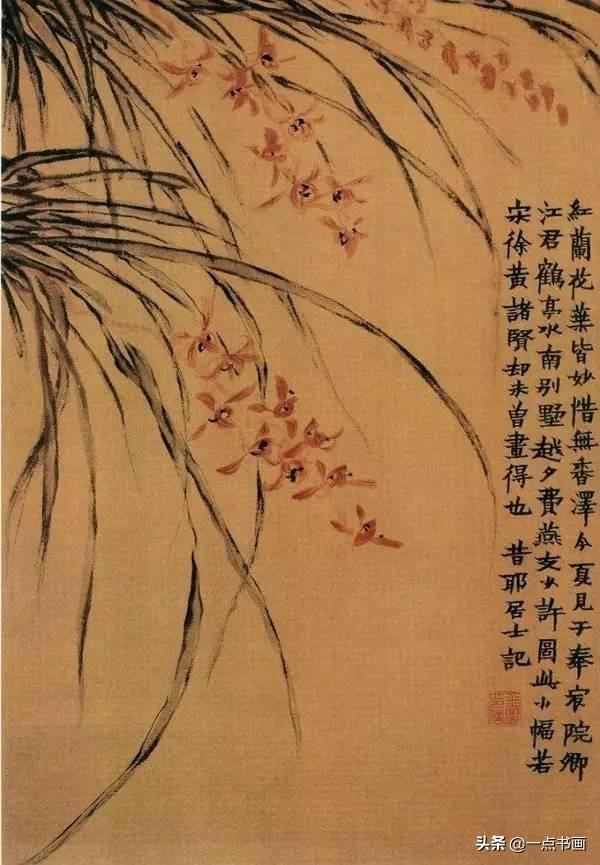 紅蘭花葉皆妙惜無香澤今夏見于奉宸院卿
江君鶴亭水南別墅越夕費燕支少許圖此小幅若
宋徐黃諸賢却未曾畫得也 昔耶居士記
头条 @一点书画